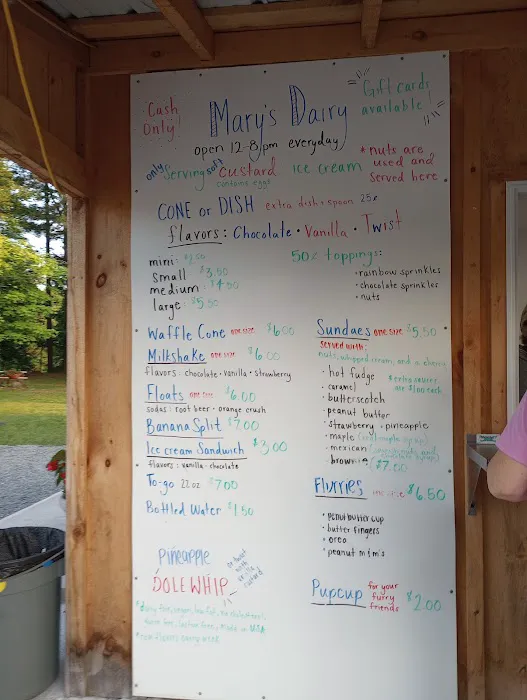 Cash Only!
Mary's Dairy
Gift cards available!
open 12-8pm everyday
only serving soft custard ice cream
contains eggs
*nuts are used and served here
CONE or DISH extra dish + spoon 25¢
flavors: Chocolate • Vanilla • Twist
mini: $2.00
small $3.50
medium: $4.50
large: $5.50
50¢ toppings:
• rainbow sprinkles
• chocolate sprinkles
• nuts
Waffle Cone one size $6.00
Milkshake one size $6.00
flavors: chocolate • vanilla • strawberry
Floats one size $6.00
sodas: root beer • orange crush
Banana Split $7.00
Ice cream Sandwich $3.00
flavors: vanilla • chocolate
To-go 22oz $7.00
Bottled Water $1.50
Pineapple
DOLE WHIP
or twist with vanilla custard
Sundaes one size $5.50
served with:
nuts, whipped cream, and a cherry
• hot fudge
• caramel
• butterscotch
• peanut butter
• strawberry • pineapple
• maple
• mexican
• brownie $7.00
*extra sauces are $1.00 each
Flurries one size $6.50
• peanut butter cup
• butter fingers
• oreo
• peanut m&m's
Pupcup for your furry friends $2.00